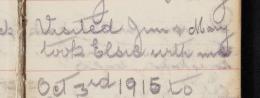 Visited Jim & Mary
took Elsie with me
Oct 3rd 1915 to